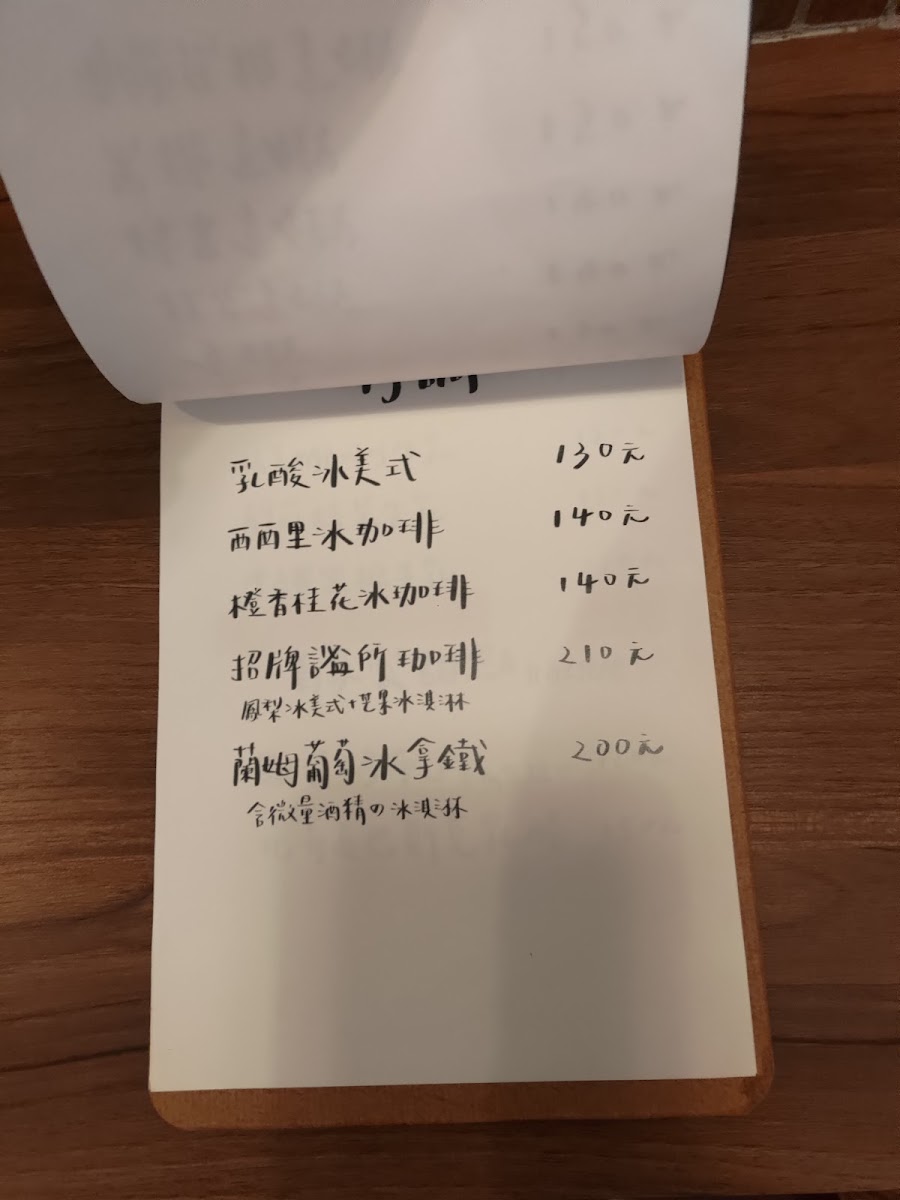 乳酸冰美式 130元
西西里冰咖啡 140元
橙香桂花冰咖啡 140元
招牌謐所咖啡 210元
鳳梨冰美式+芒果冰淇淋
蘭姆葡萄冰拿鐵 200元
含微量酒精の冰淇淋